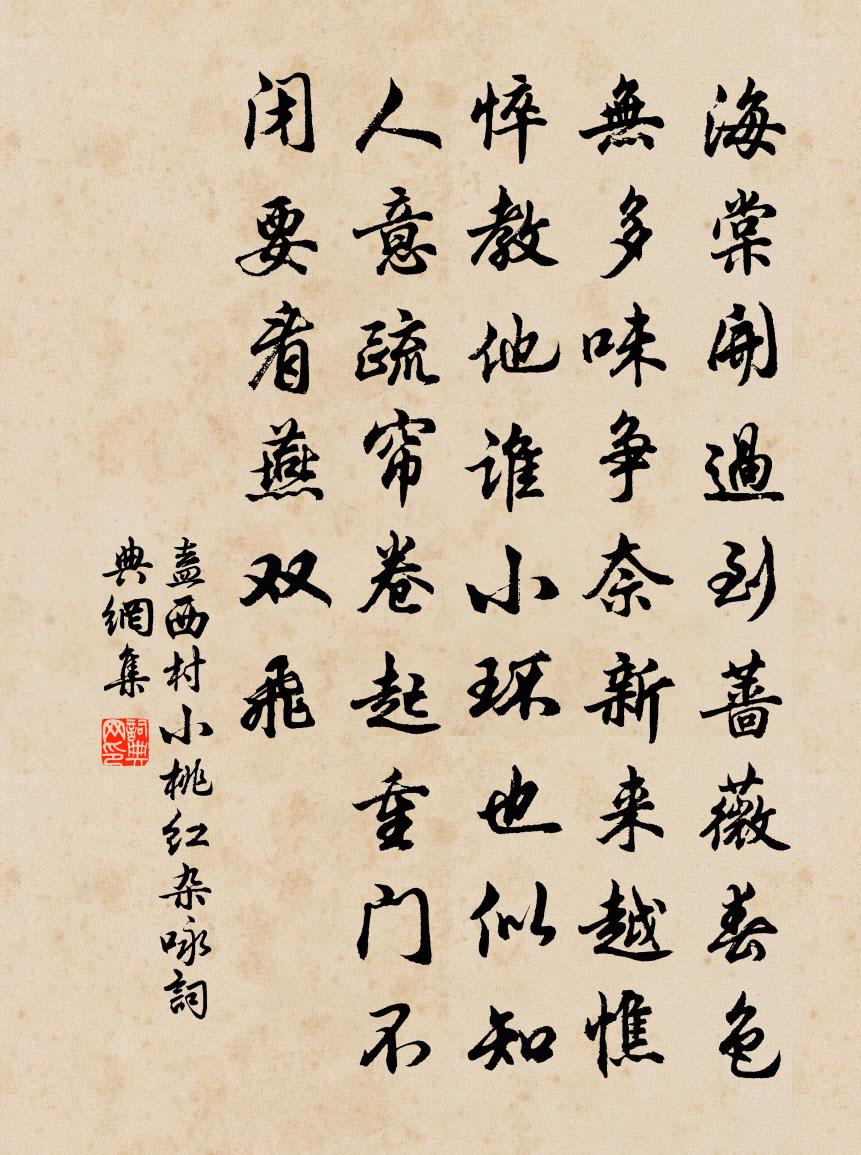 海棠開過到薔薇春色
無多味争奈新来越憔
悴教他谁小环也似知
人意疏帘卷起重门不
闭要看燕双飛
盍西村小桃红杂咏詞
典網集
詞典网印